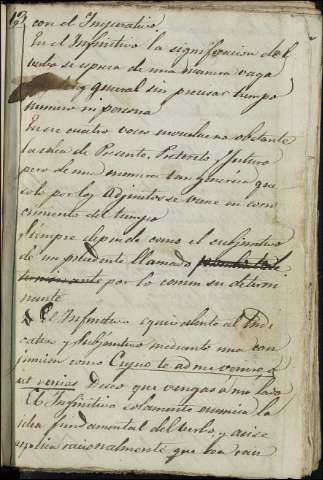 con el Imperativo
En el Infinitivo la significacion del
verbo se espresa de una manera vaga
y general sin precisar tiempo
numero ni persona
En sus cuatro voces envuelve no obstante
la idea de Presente, Preterito y futuro
pero de una manera tan generica que
solo por los Adjuntos se viene en cono
cimiento del tiempo
Siempre depende como el subjuntivo
de un precedente llamado
por lo comun su determi
nante
El Infinitivo equivalente al Indi
cativo y Subjuntivo mediante una con
juncion como Cupio te ad me venire, á
Deseo que vengas á mi lado
El Infinitivo solamente enuncia la
idea fundamental del verbo, y asi se
esplica racionalmente que sea tan